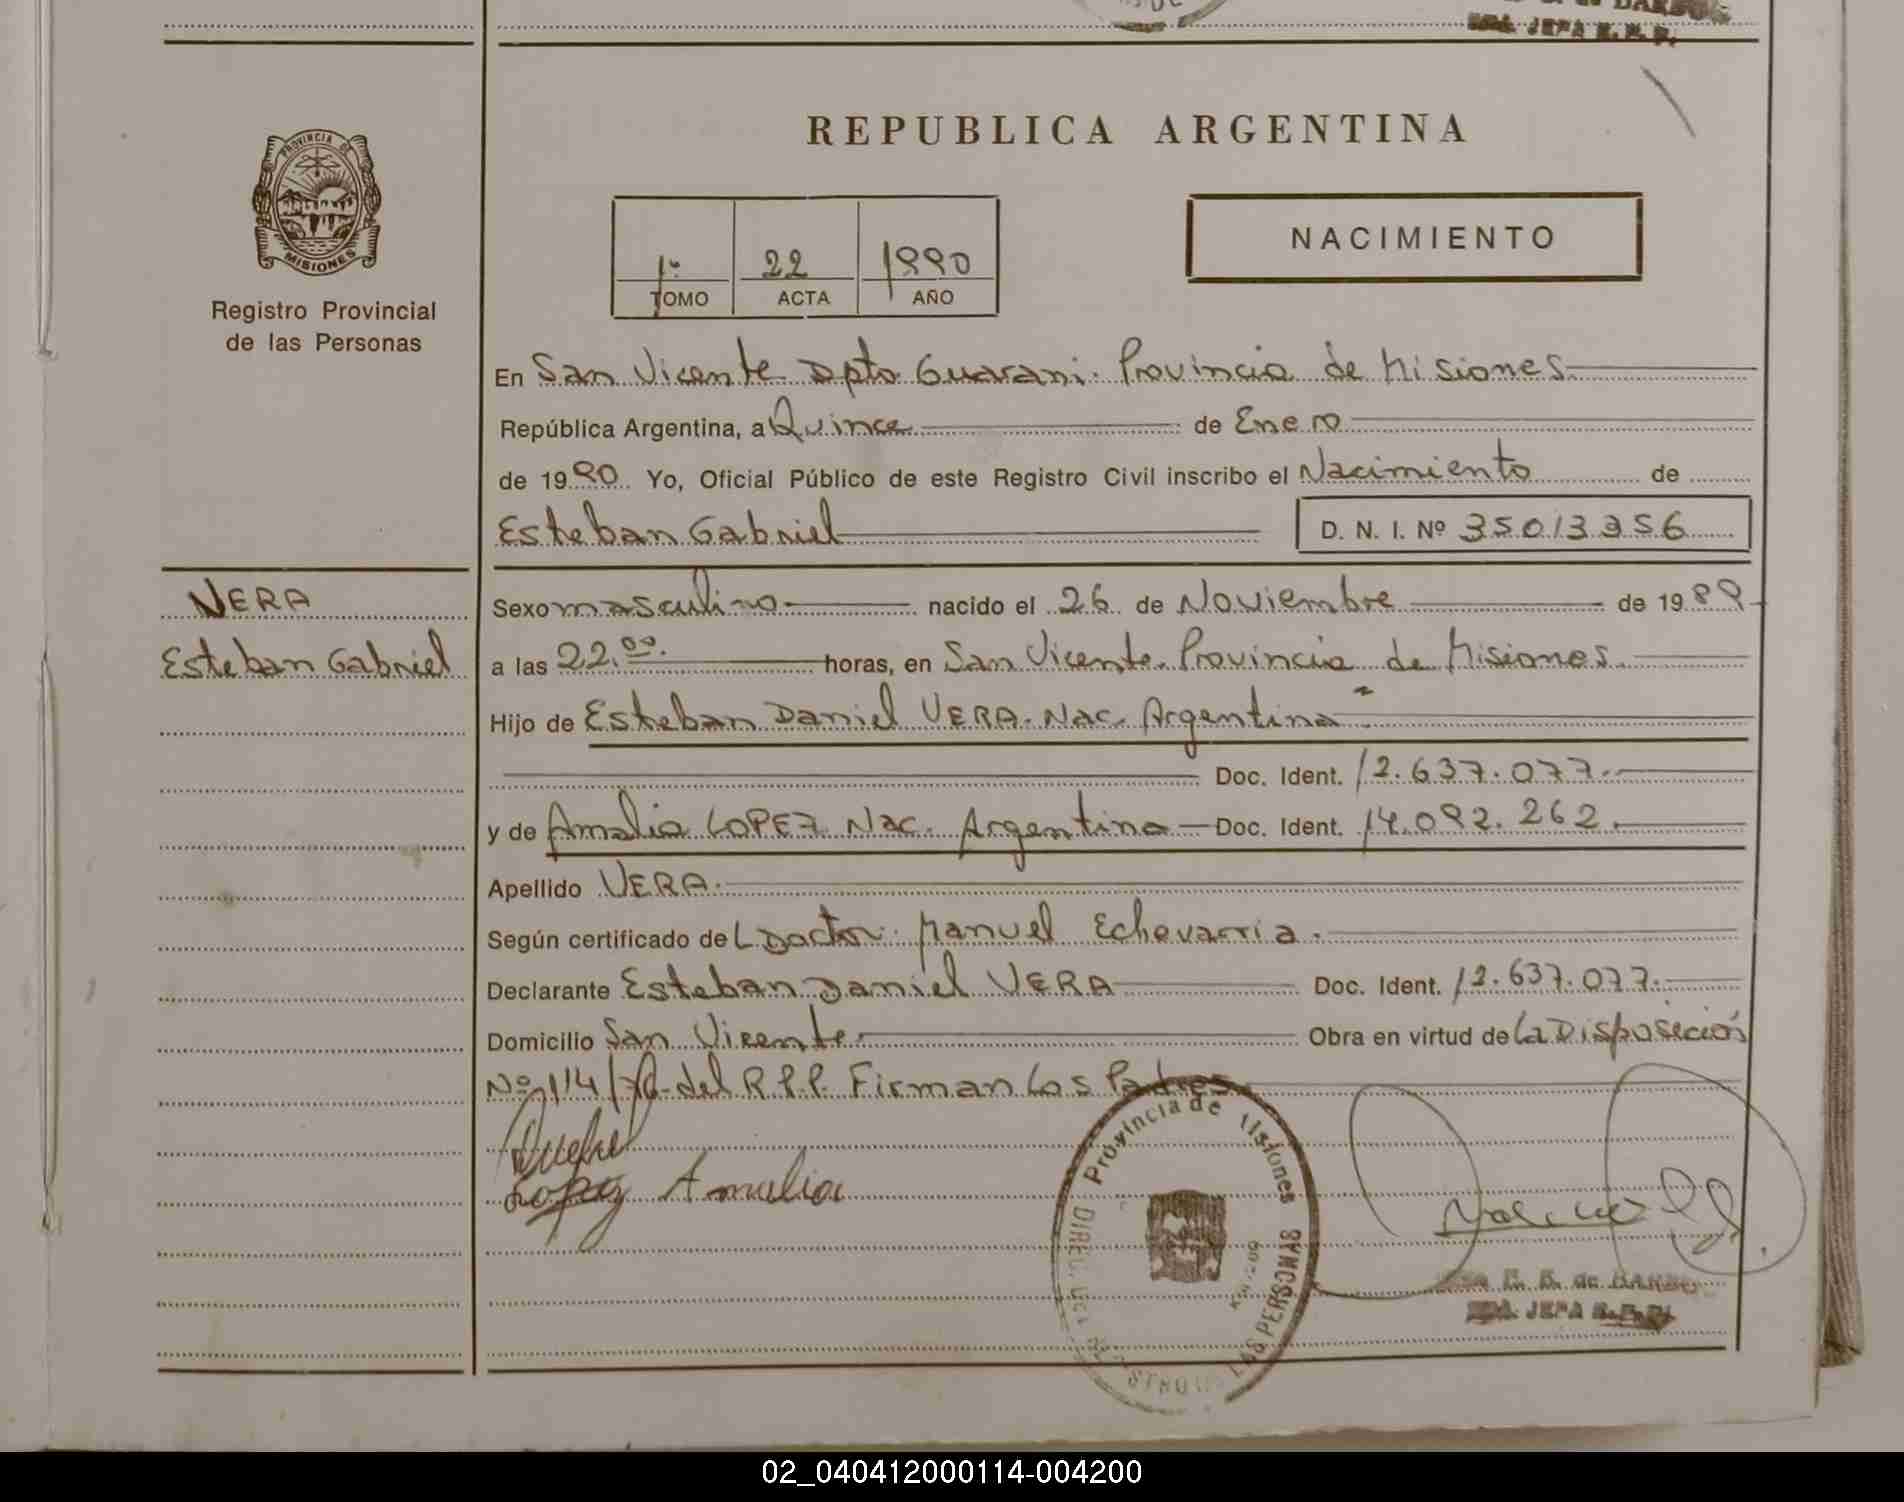 JEFA R. P. P.
REPUBLICA ARGENTINA
PROVINCIA DE
MISIONES
Registro Provincial
de las Personas
1º 22 1990
TOMO ACTA AÑO
NACIMIENTO
En San Vicente Dpto Guarani. Provincia de Misiones.
República Argentina, a Quince de Enero
de 1990. Yo, Oficial Público de este Registro Civil inscribo el Nacimiento de
Esteban Gabriel D. N. I. Nº 35013356
VERA
Esteban Gabriel
Sexo masculino nacido el 26 de Noviembre de 1989
a las 22.00. horas, en San Vicente. Provincia de Misiones.
Hijo de Esteban Daniel VERA. Nac. Argentina
Doc. Ident. 12.637.077.
y de Amalia LOPEZ Nac. Argentina Doc. Ident. 14.092.262.
Apellido VERA.
Según certificado del Doctor. Manuel Echevarria.
Declarante Esteban Daniel VERA Doc. Ident. 12.637.077.
Domicilio San Vicente. Obra en virtud de la Disposición
Nº 114/ del R.P.P. Firman los Padres
Lopez Amalia
Provincia de Misiones
LAS PERSONAS
E. B. de
JEFA
02_040412000114-004200